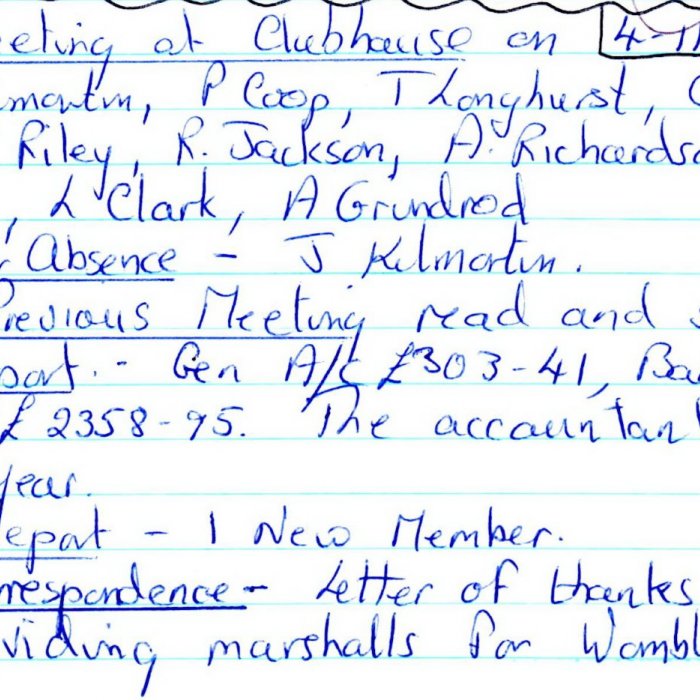 eeting at Clubhouse on 4-11
martin, P Coop, T Longhurst,
Riley, R. Jackson, A. Richardso
, L Clark, A Grundrod
Absence - J Kilmartin.
Previous Meeting read and
port. - Gen A/c £303-41, Ba
£2358-95. The accountant
year.
eport - 1 New Member.
rrespondence - Letter of thanks
viding marshalls for Wombl